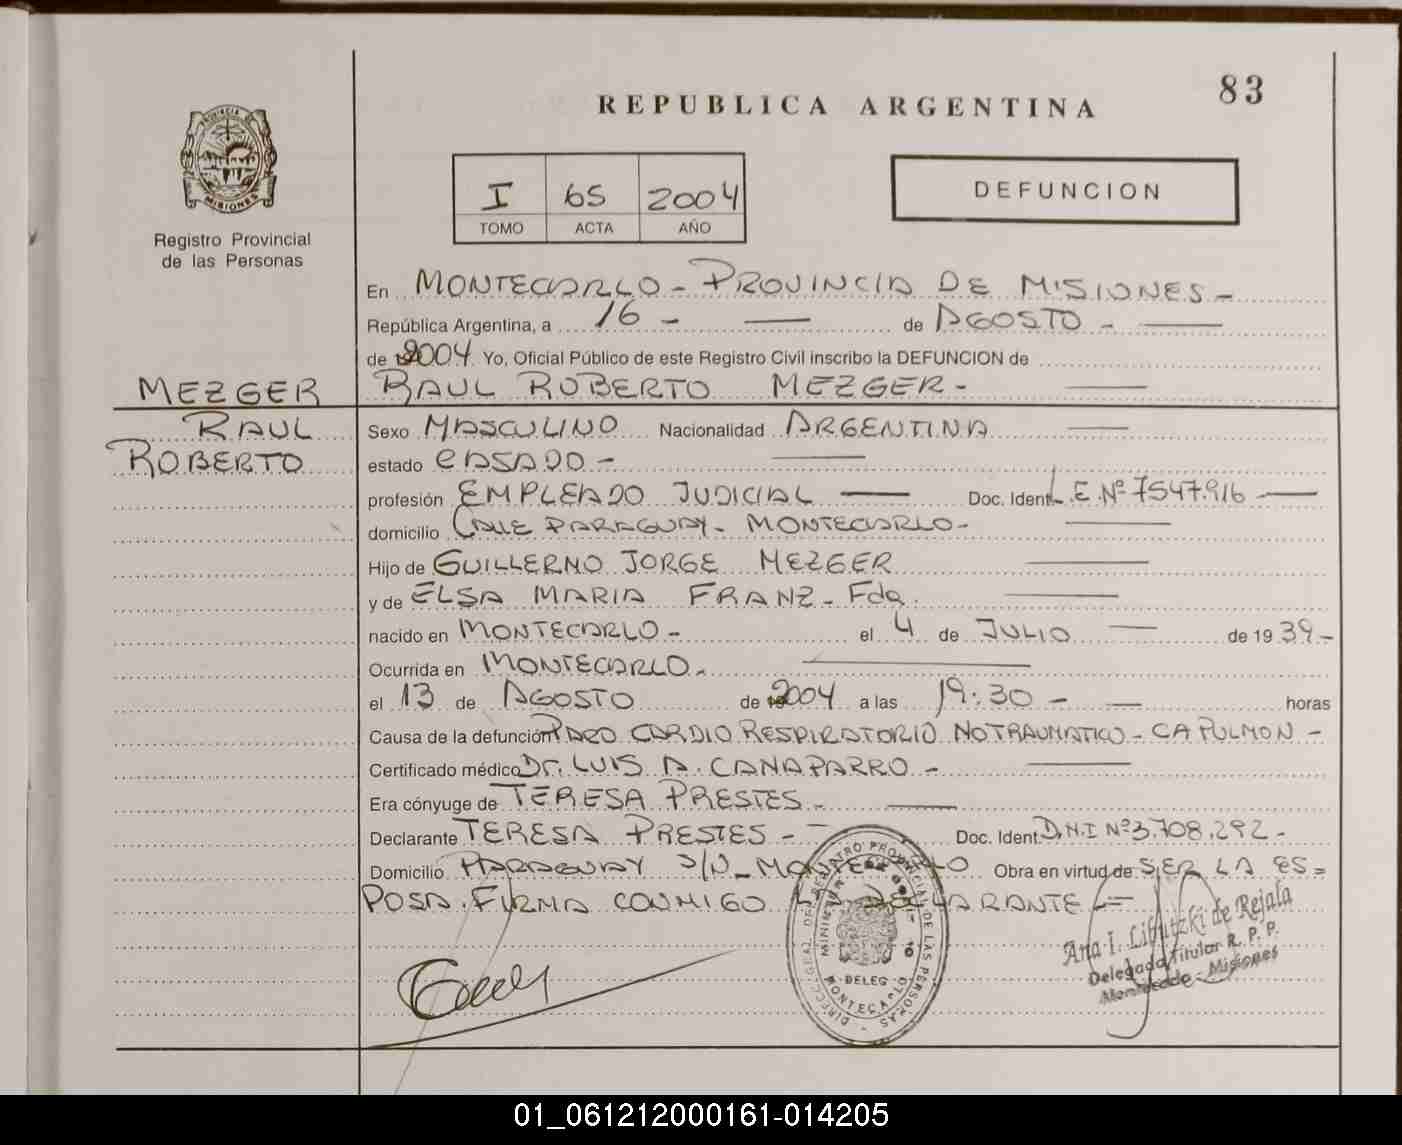 83
REPUBLICA ARGENTINA
PROVINCIA DE
MISIONES
Registro Provincial
de las Personas
I 65 2004
TOMO ACTA AÑO
DEFUNCION
En MONTECARLO - PROVINCIA DE MISIONES -
República Argentina, a 16 - de AGOSTO -
de 2004 Yo, Oficial Público de este Registro Civil inscribo la DEFUNCION de
MEZGER RAUL ROBERTO MEZGER -
RAUL Sexo MASCULINO Nacionalidad ARGENTINA
ROBERTO estado CASADO -
profesión EMPLEADO JUDICIAL Doc. Ident. L.E. Nº 7547.916
domicilio CALLE PARAGUAY - MONTECARLO -
Hijo de GUILLERNO JORGE MEZGER
y de ELSA MARIA FRANZ - Fda.
nacido en MONTECARLO - el 4 de JULIO de 19 39 -
Ocurrida en MONTECARLO -
el 13 de AGOSTO de 2004 a las 19:30 - horas
Causa de la defunción PARO CARDIO RESPIRATORIO NO TRAUMATICO - CA PULMON -
Certificado médico Dr. LUIS A. CANAPARRO -
Era cónyuge de TERESA PRESTES -
Declarante TERESA PRESTES - Doc. Ident. D.N.I Nº 3.708.292 -
Domicilio PARAGUAY S/N - MONTECARLO Obra en virtud de SER LA ES=
POSA. FIRMA CONMIGO LA DECLARANTE =
Ana I. Libutzki de Rejala
Delegada Titular R. P. P.
Montecarlo - Misiones
DIREC. GRAL. DEL REGISTRO PROVINCIAL DE LAS PERSONAS
DELEG
MONTECARLO
01_061212000161-014205